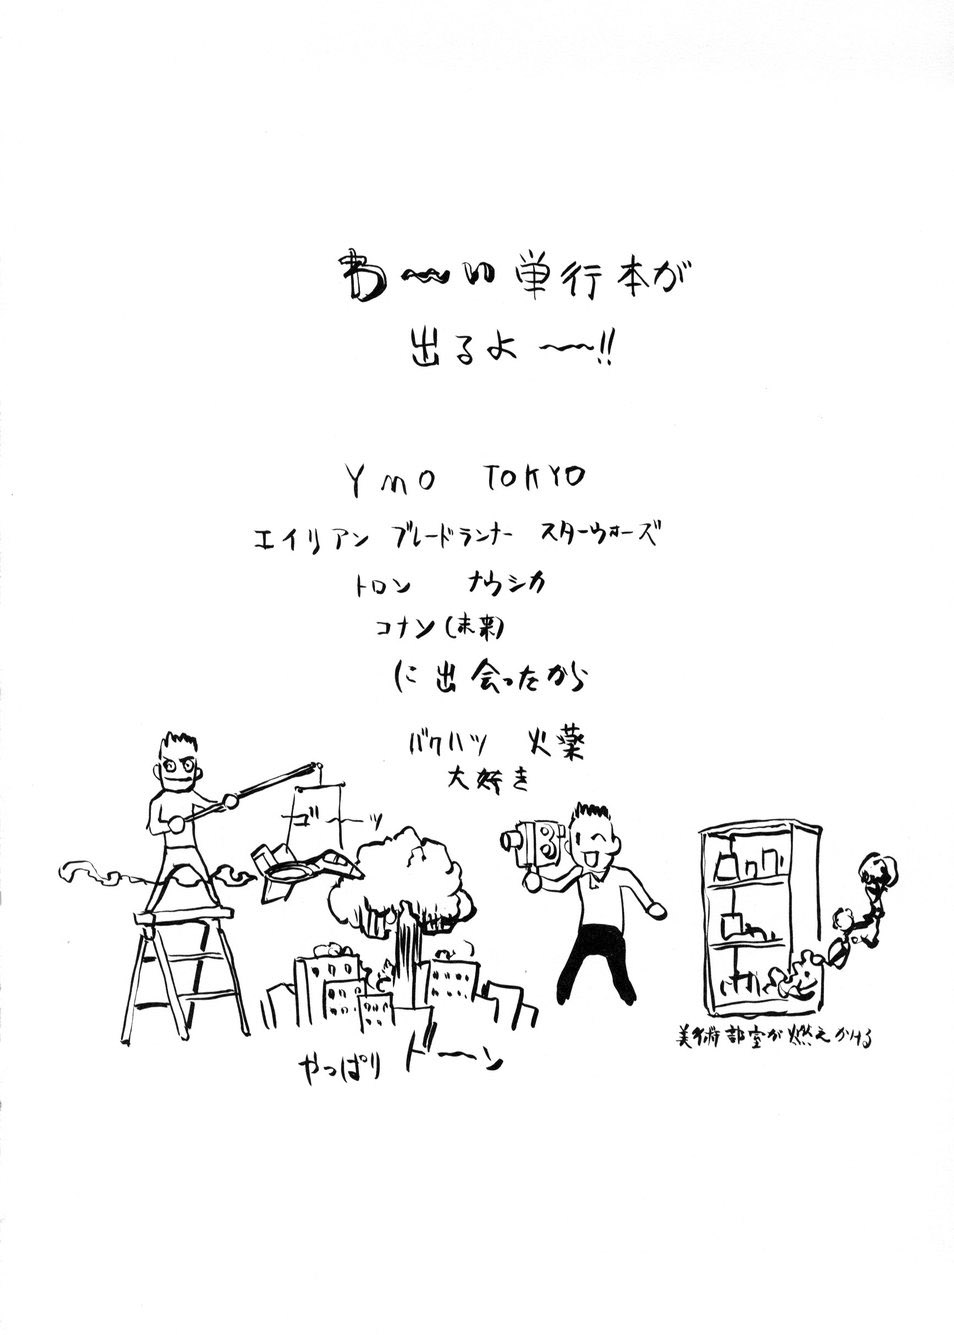 わ〜い単行本が
出るよ〜!!
YMO TOKYO
エイリアン ブレードランナー スターウォーズ
トロン ナウシカ
コナン(未来)
に出会ったから
バクハツ 火薬
大好き
ゴーッ
やっぱり ドーン
美術部室が燃えかける